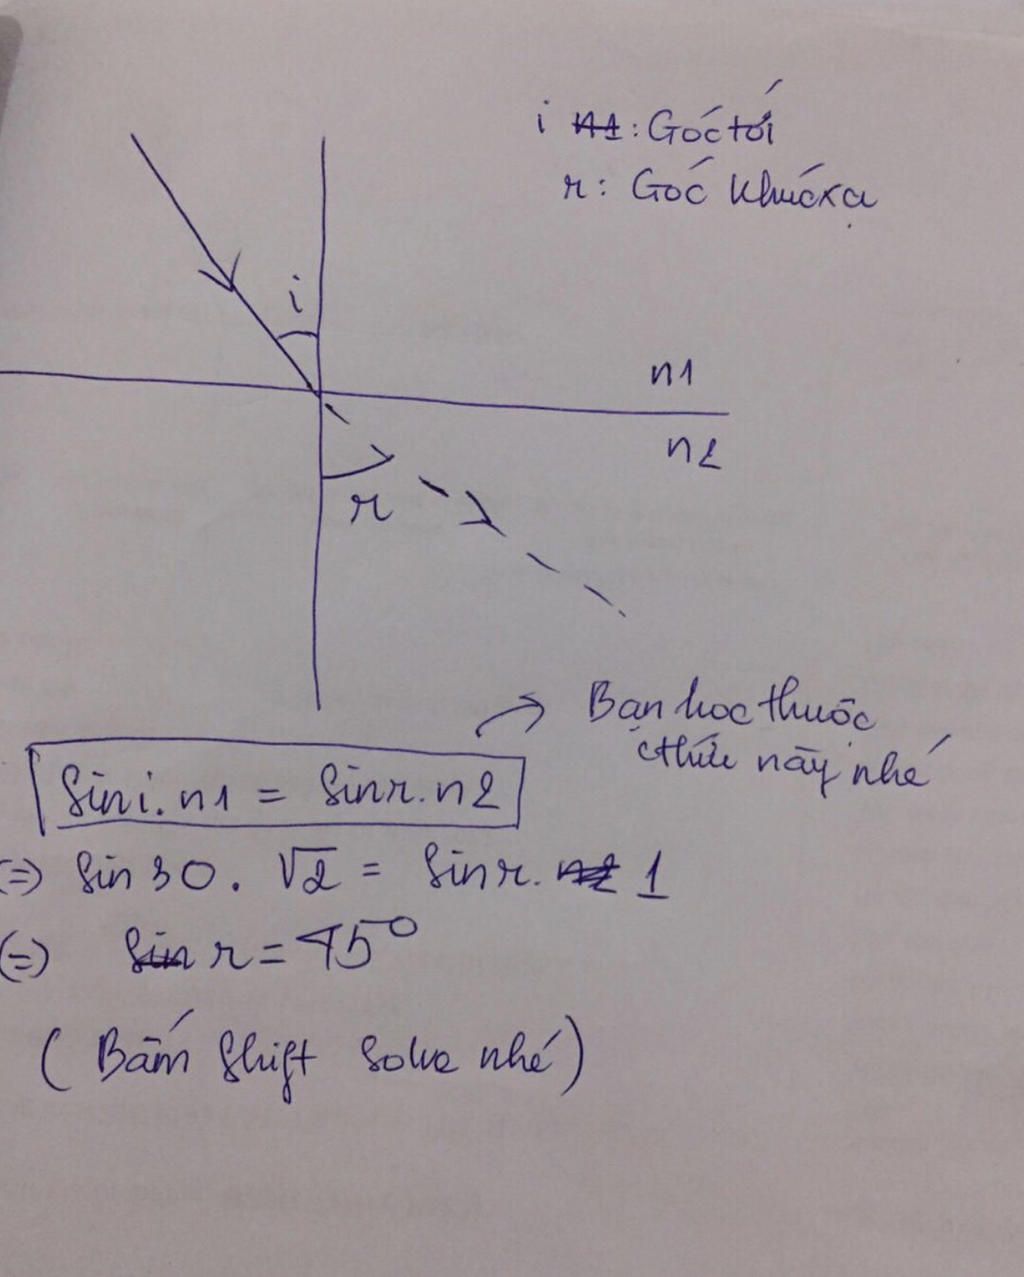 i n1: Góc tới
r: Góc khúc xạ
i
n1
n2
r
Bạn học thuộc
cthức này nhé
Sini.n1 = Sinr.n2
(=) Sin 30. √2 = Sinr. n2 1
(=) Sin r = 45°
(Bấm Shift Solve nhé)